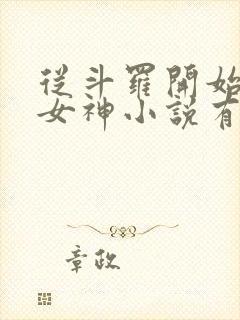 從斗羅開始
女神小說有
章政